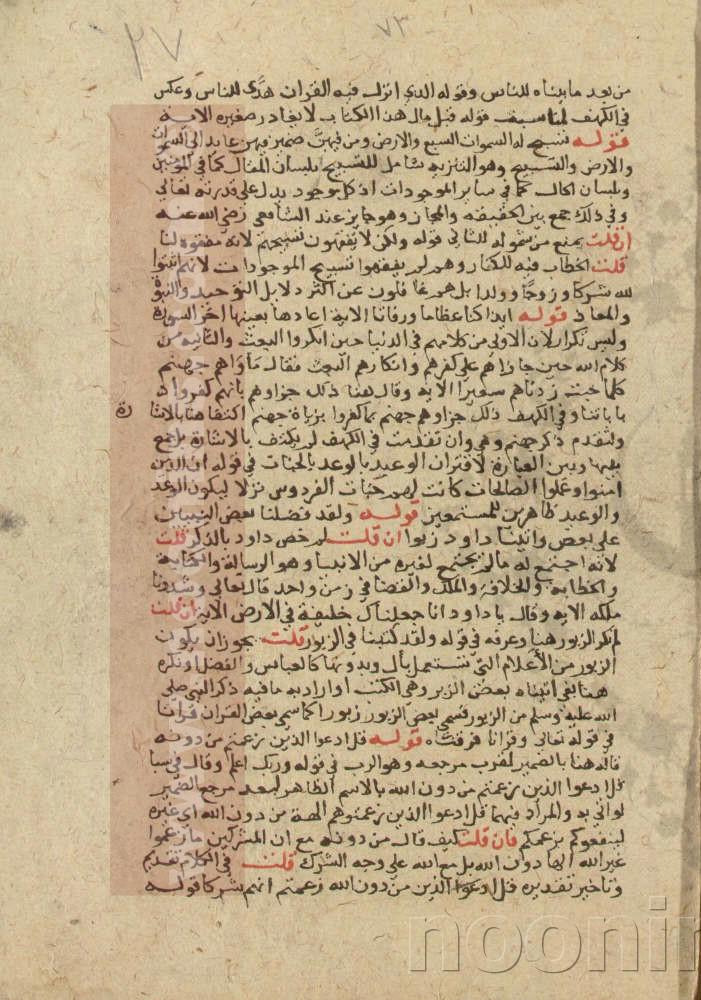 ٢٧ ٧٣
من بعد ما بيناه للناس وقوله الذي انزل فيه القران هدى للناس وعكس
في الكهف لمناسبة قوله قبل مال هذا الكتاب لا يغادر صغيرة الاية
قوله تسبح له السموات السبع والارض ومن فيهن ضمير فيهن عايد الى السموات
والارض والتسبيح وهو التنزيه شامل للتسبيح بلسان المقال كما في المؤمنين
وبلسان الحال كما في ساير الموجودات اذ كل موجود يدل على قدرته تعالى
وفي ذلك جمع بين الحقيقة والمجاز وهو جايز عند الشافعي رضي الله عنه
ان قلت يمنع من شموله للثاني قوله ولكن لا يفقهون تسبيحهم لانه مفقوه لنا
قلت الخطاب فيه للكفار وهم لم يفقهوا تسبيح الموجودات لانهم اثبتوا
لله شركا وزوجا وولدا بل هم غافلون عن اكثر دلايل التوحيد والنبوة
والمعاد قوله ايذا كنا عظاما ورفاتا الاية اعادها بعينها اخر السورة
وليس تكرارا لان الاولى من كلامهم في الدنيا حين انكروا البعث والثانية من
كلام الله حين جازاهم على كفرهم وانكارهم البعث فقال ماواهم جهنم
كلما خبت زدناهم سعيرا الاية وقال هنا ذلك جزاوهم بانهم كفروا
باياتنا وفي الكهف ذلك جزاوهم جهنم بما كفروا بزيادة جهنم اكتفا هنا بالاشا
رة
ولتقدم ذكر جهنم وهي وان تقدمت في الكهف لم يكتف بالاشارة بل جمع
بينها وبين العبارة لاقتران الوعيد بالوعد بالجنات في قوله ان الذين
امنوا وعملوا الصالحات كانت لهم جنات الفردوس نزلا ليكون الوعد
والوعيد ظاهرين للمستمعين قوله ولقد فضلنا بعض النبيين
على بعض واتينا داود زبورا ان قلت لم خص داود بالذكر قلت
لانه اجتمع له ما لم يجتمع لغيره من الانبيا وهو الرسالة والكتابة
والخطابة والخلافة والملك والقضا في زمن واحد قال تعالى وشددنا
ملكه الاية وقال يا داود انا جعلناك خليفة في الارض الاية ان قلت
لم نكر الزبور هنا وعرفه في قوله ولقد كتبنا في الزبور قلت يجوز ان يكون
الزبور من الأعلام التي تستعمل بأل وبدونها كالعباس والفضل او نكره
هنا بمعنى اتيناه بعض الزبر وهي الكتب او اراد به ما فيه ذكر النبي صلى
الله عليه وسلم من الزبور فسمى بعض الزبور زبورا كما سمى بعض القران قرانا
في قوله تعالى وقرانا فرقناه قوله قل ادعوا الذين زعمتم من دونه
قاله هنا بالضمير لقرب مرجعه وهو الرب في قوله وربك اعلم وقال في سبا
قل ادعوا الذين زعمتم من دون الله بالاسم الظاهر لبعد مرجع الضمير
لو اتي به والمراد فيهما قل ادعوا الذين زعمتموهم الهة من دون الله اي غيره
لينفعوكم بزعمكم فان قلت كيف قال من دونه مع ان المشركين ما زعموا
غير الله الها دون الله بل مع الله على وجه الشرك قلت في الكلام تقديم
وتاخير تقديره قل ادعوا الذين من دون الله زعمتم انهم شركا قوله
noonir